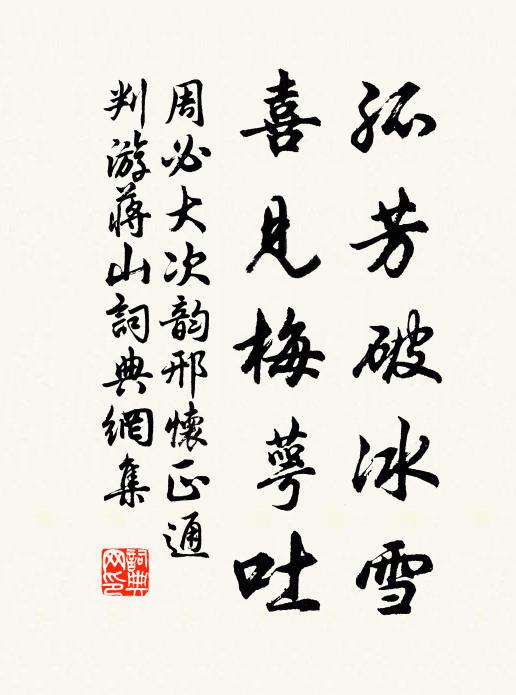 孤芳破冰雪
喜見梅萼吐
周必大次韵邢懷正通
判游蔣山詞典網集
詞典
网印